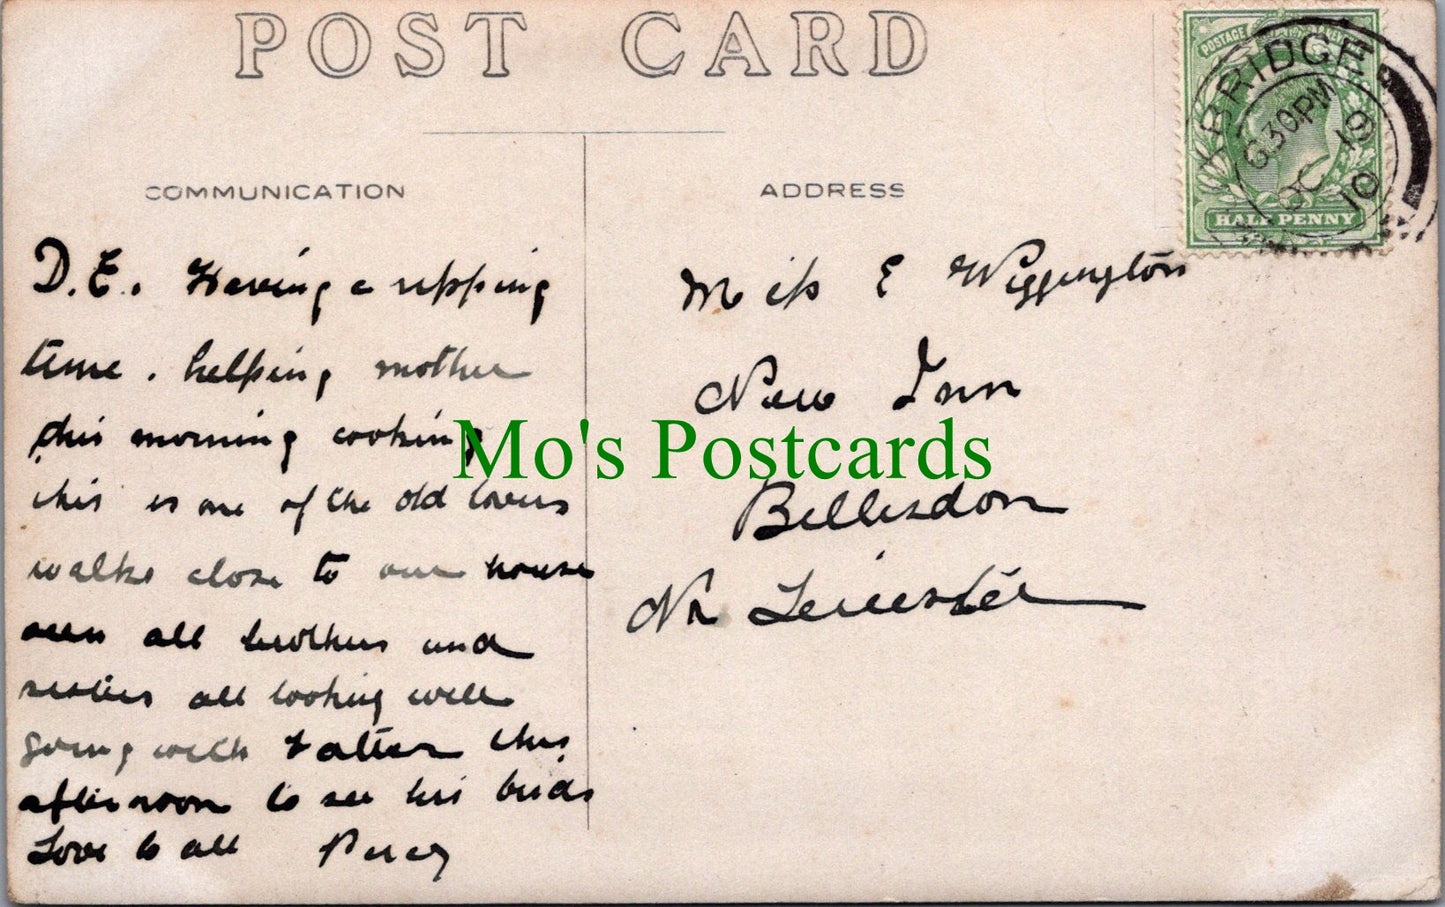 POST CARD
COMMUNICATION
D.E. Having a ripping
time. helping mother
this morning cooking
this is one of the old lovers
walks close to our house
seen all brothers and
sisters all looking well
going with Father this
afternoon to see his birds
Love to all Percy
ADDRESS
Miss E Wiggington
New Inn
Billesdon
Nr Leicester
POSTAGE
HALF PENNY
BRIDGE
630PM
OC 19
10
Mo's Postcards